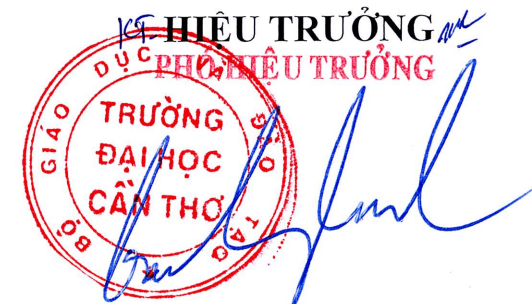 KT. HIỆU TRƯỞNG
PHÓ HIỆU TRƯỞNG
BỘ GIÁO DỤC VÀ ĐÀO TẠO
TRƯỜNG
ĐẠI HỌC
CẦN THƠ